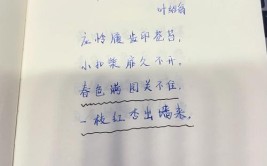 叶绍翁
应怜屐齿印苍苔,
小扣柴扉久不开。
春色满园关不住,
一枝红杏出墙来。